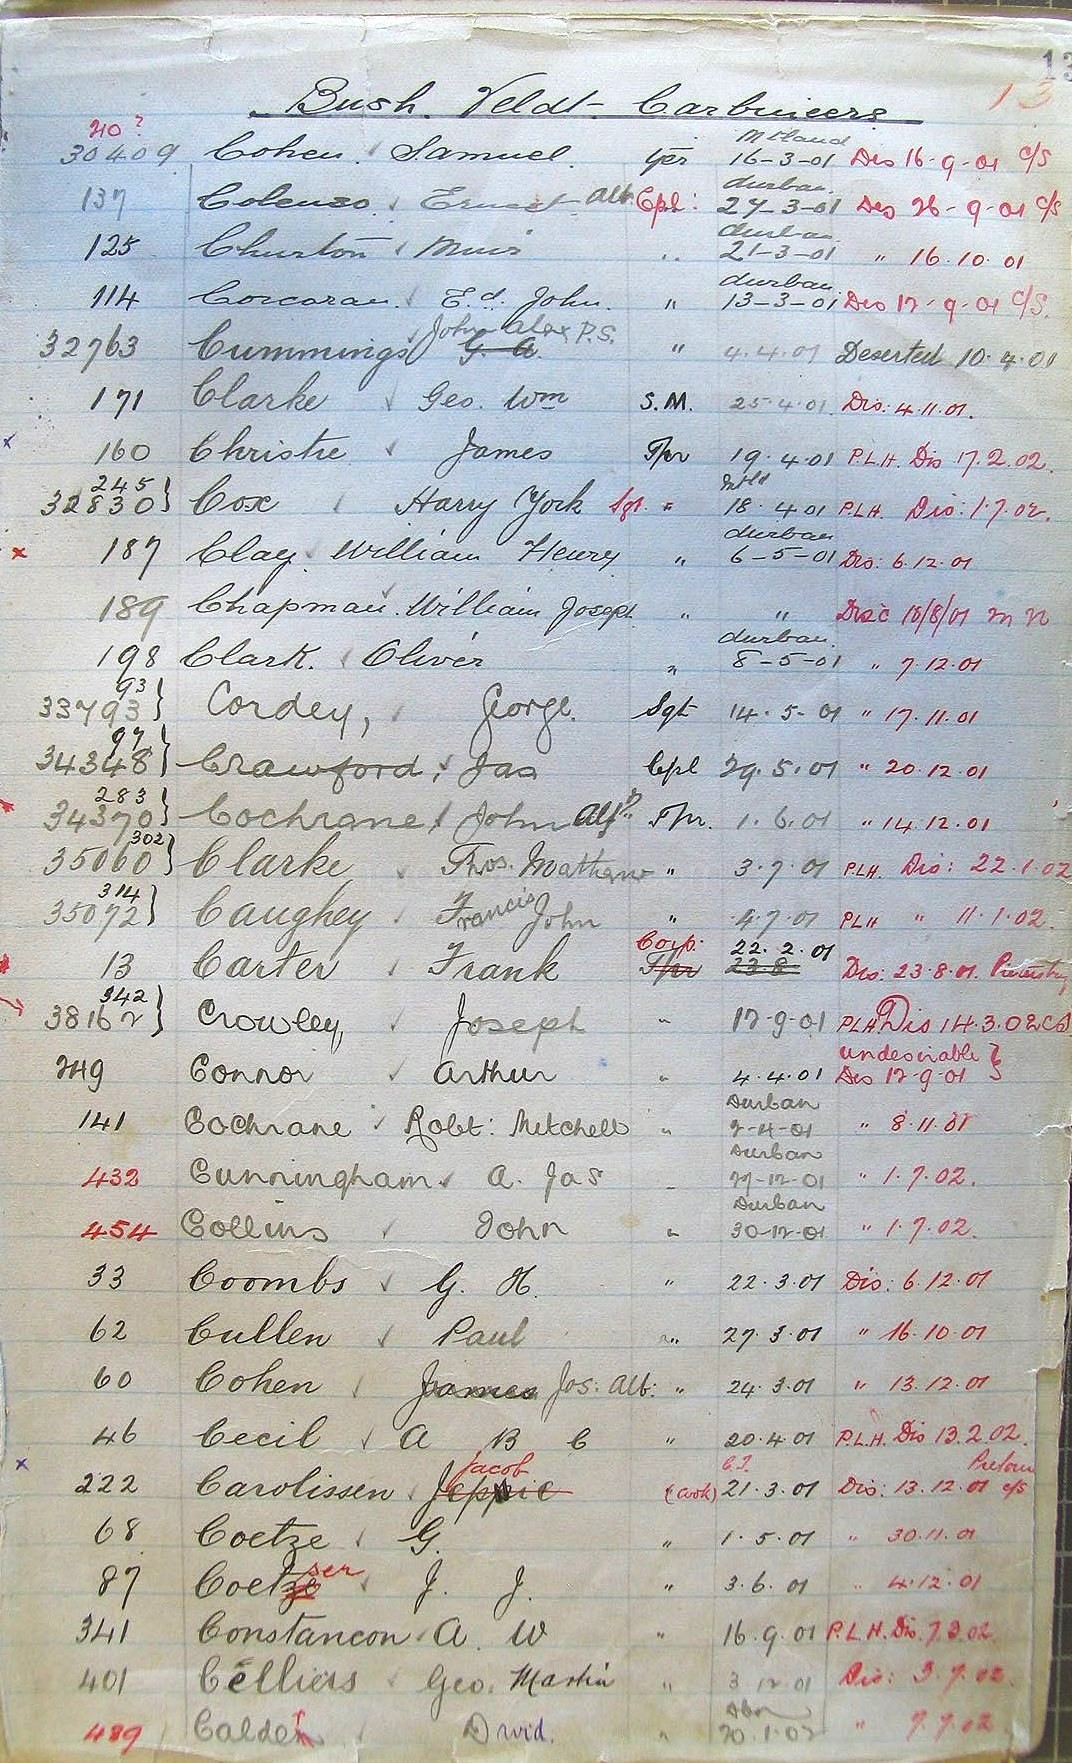 13
13
Bush Veldt Carbineers
no?
Mtland
30409 Cohen Samuel Tpr 16-3-01 Dis 16-9-01 C/S
durban
137 Colenso Ernest Alb. Cpl: 27-3-01 Dis 26-9-01 C/S
durban
125 Churton Muir " 21-3-01 " 16.10.01
durban
114 Corcoran Ed. John " 13-3-01 Dis 12-9-01 C/S.
John Alex P.S.
32763 Cummings G. A. " 4.4.01 Deserted 10.4.01
171 Clarke Geo. Wm S.M. 25.4.01 Dis: 4.11.01.
x 160 Christie James Tpr 19.4.01 P.L.H. Dis 17.2.02.
245 Mtld
32830} Cox Harry York Sgt. " 18.4.01 P.L.H. Dis: 1.7.02.
durban
x 187 Clay William Henry " 6-5-01 Dis: 6.12.01
189 Chapman William Joseph " " Disc 18/8/01 M N
durban
198 Clark. Oliver " 8-5-01 " 7.12.01
93
33793} Cordey, George. Sgt 14.5.01 " 17.11.01
97
34348} Crawford, Jas Cpl 29.5.01 " 20.12.01
283
34370} Cochrane, John Alfd Tpr. 1.6.01 " 14.12.01
302
35060} Clarke Thos. Mathew " 3.7.01 P.L.H. Dis: 22.1.02
314
35072} Caughey Francis John " 4.7.01 PLH " 11.1.02.
Corp: 22.2.01
13 Carter Frank Tpr 23.8. Dis: 23.8.01.
342
38162} Crowley Joseph " 12-9-01 PLH Dis 14.3.02 C/S
undesirable }
249 Connor Arthur " 4.4.01 Dis 12-9-01
Durban
141 Cochrane Robt: Mitchell " 2-4-01 " 8.11.01
Durban
432 Cunningham A. Jas " 27-12-01 " 1.7.02.
Durban
454 Collins John " 30-12-01 " 1.7.02.
33 Coombs G. H. " 22.3.01 Dis: 6.12.01
62 Cullen Paul " 27.3.01 " 16.10.01
60 Cohen James Jos: Alb: " 24.3.01 " 13.12.01
46 Cecil A B C " 20.4.01 P.L.H. Dis 13.2.02.
x Jacob C.T.
222 Carolissen Jeppie (Cook) 21.3.01 Dis: 13.12.01 C/S
68 Coetze G. " 1.5.01 " 30.11.01
ser
87 Coetze J. J. " 3.6.01 " 4.12.01
341 Constancon A. W " 16.9.01 P.L.H. Dis. 7.3.02.
401 Celliers Geo. Martin " 3 12 01 Dis: 3.7.02.
489 Calder David. " 20.1.02 " 7.7.02